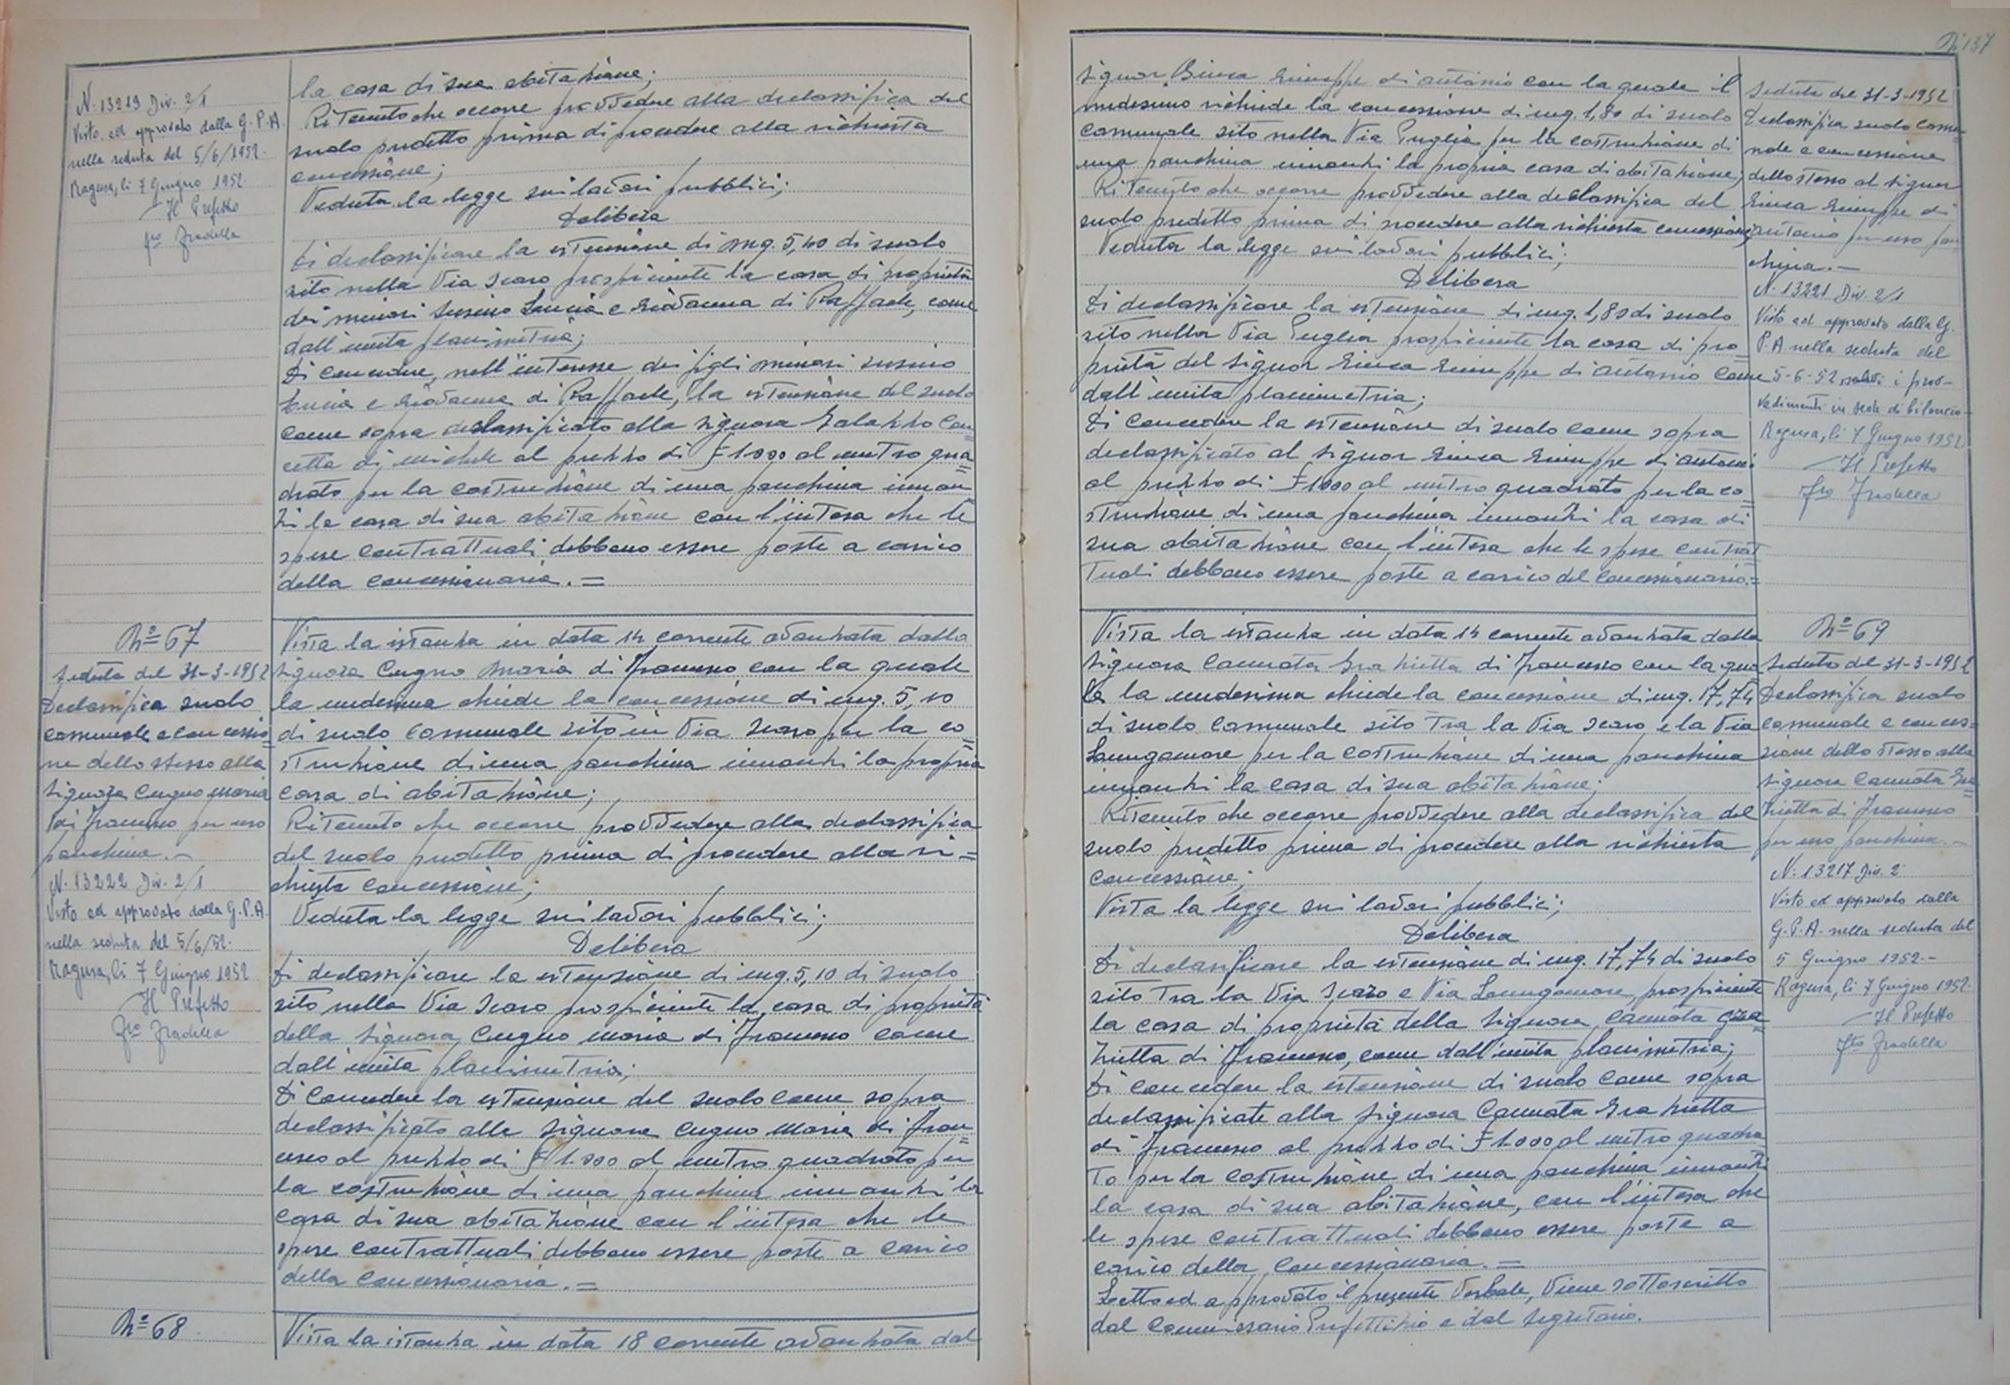 N. 13219 Div. 2/1
Visto ed approvato dalla G.P.A.
nella seduta del 5/6/1952.
Ragusa, li 7 Giugno 1952
Il Prefetto
Fto Fradella
la casa di sua abitazione;
Ritenuto che occorre provvedere alla declassifica del
suolo predetto prima di procedere alla richiesta
concessione;
Veduta la legge sui lavori pubblici;
Delibera
Di declassificare la estensione di mq. 5,40 di suolo
sito nella Via Icaro prospiciente la casa di proprietà
dei minori Susino Lucia e Giovanna di Raffaele, come
dall'unita planimetria;
Di concedere, nell'interesse dei figli minori Susino
Lucia e Giovanna di Raffaele, la estensione del suolo
come sopra declassificato alla Signora Galazzo Con=
cetta di Michele al prezzo di £ 1000 al metro qua=
drato per la costruzione di una panchina innan
zi la casa di sua abitazione con l'intesa che le
spese contrattuali debbono essere poste a carico
della concessionaria. =
N° 67
Seduta del 31-3-1952
Declassifica suolo
comunale e concessio=
ne dello stesso alla
Signora Cugno Maria
di Francesco per uso
panchina. -
N. 13222 Div. 2/1
Visto ed approvato dalla G.P.A.
nella seduta del 5/6/52.
Ragusa, li 7 Giugno 1952
Il Prefetto
Fto Fradella
Vista la istanza in data 14 corrente avanzata dalla
Signora Cugno Maria di Francesco con la quale
la medesima chiede la concessione di mq. 5,10
di suolo comunale sito in Via Icaro per la co=
struzione di una panchina innanzi la propria
casa di abitazione;
Ritenuto che occorre provvedere alla declassifica
del suolo predetto prima di procedere alla ri=
chiesta concessione;
Veduta la legge sui lavori pubblici;
Delibera
Di declassificare la estensione di mq. 5,10 di suolo
sito nella Via Icaro prospiciente la casa di proprietà
della Signora Cugno Maria di Francesco come
dall'unita planimetria;
Di concedere la estensione del suolo come sopra
declassificato alla Signora Cugno Maria di Fran=
cesco al prezzo di £ 1.000 al metro quadrato per
la costruzione di una panchina innanzi la
casa di sua abitazione con l'intesa che le
spese contrattuali debbono essere poste a carico
della concessionaria. =
N° 68
Vista la istanza in data 18 corrente avanzata dal
137
Signor Giuca Giuseppe di Antonio con la quale il
medesimo richiede la concessione di mq. 1,80 di suolo
comunale sito nella Via Puglia per la costruzione di
una panchina innanzi la propria casa di abitazione;
Ritenuto che occorre provvedere alla declassifica del
suolo predetto prima di procedere alla richiesta concessione;
Veduta la legge sui lavori pubblici;
Delibera
Di declassificare la estensione di mq. 1,80 di suolo
sito nella Via Puglia prospiciente la casa di pro
prietà del Signor Giuca Giuseppe di Antonio come
dall'unita planimetria;
Di concedere la estensione di suolo come sopra
declassificato al Signor Giuca Giuseppe di Antonio
al prezzo di £ 1000 al metro quadrato per la co=
struzione di una panchina innanzi la casa di
sua abitazione con l'intesa che le spese contrat
tuali debbono essere poste a carico del concessionario. =
Seduta del 31-3-1952
Declassifica suolo comu
nale e concessione
dello stesso al Signor
Giuca Giuseppe di
Antonio per uso pan
china. -
N. 13221 Div. 2/1
Visto ed approvato dalla G.
P.A. nella seduta del
5-6-52 salvi i prov-
vedimenti in sede di bilancio-
Ragusa, li 7 Giugno 1952
Il Prefetto
Fto Fradella
Vista la istanza in data 14 corrente avanzata dalla
Signora Cannata Graziella di Francesco con la qua
le la medesima chiede la concessione di mq. 17,74
di suolo comunale sito tra la Via Icaro e la Via
Lungomare per la costruzione di una panchina
innanzi la casa di sua abitazione;
Ritenuto che occorre provvedere alla declassifica del
suolo predetto prima di procedere alla richiesta
concessione;
Vista la legge sui lavori pubblici;
Delibera
Di declassificare la estensione di mq. 17,74 di suolo
sito tra la Via Icaro e Via Lungomare, prospiciente
la casa di proprietà della Signora Cannata Gra=
ziella di Francesco, come dall'unita planimetria;
Di concedere la estensione di suolo come sopra
declassificate alla Signora Cannata Graziella
di Francesco al prezzo di £ 1000 al metro quadra
to per la costruzione di una panchina innanzi
la casa di sua abitazione, con l'intesa che
le spese contrattuali debbono essere poste a
carico della concessionaria. =
Letto ed approvato il presente Verbale, viene sottoscritto
dal Commissario Prefettizio e dal Segretario.
N° 69
Seduta del 31-3-1952
Declassifica suolo
comunale e conces=
sione dello stesso alla
Signora Cannata Gra=
ziella di Francesco
per uso panchina. -
N. 13217 Div. 2
Visto ed approvato dalla
G.P.A. nella seduta del
5 Giugno 1952. -
Ragusa, li 7 Giugno 1952.
Il Prefetto
Fto Fradella